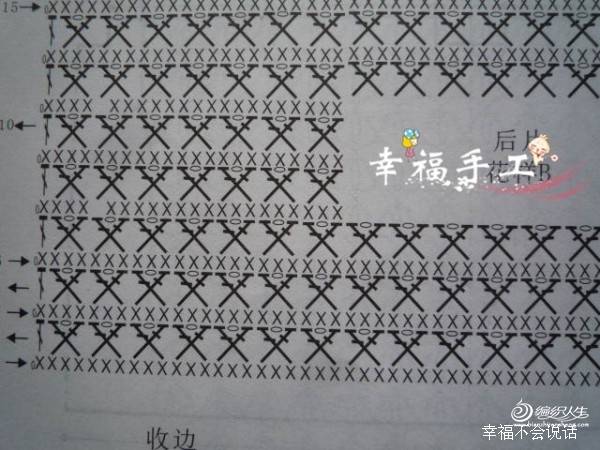 15
10
后片
幸福手工
花样B
收边
编织人生
幸福不会说话